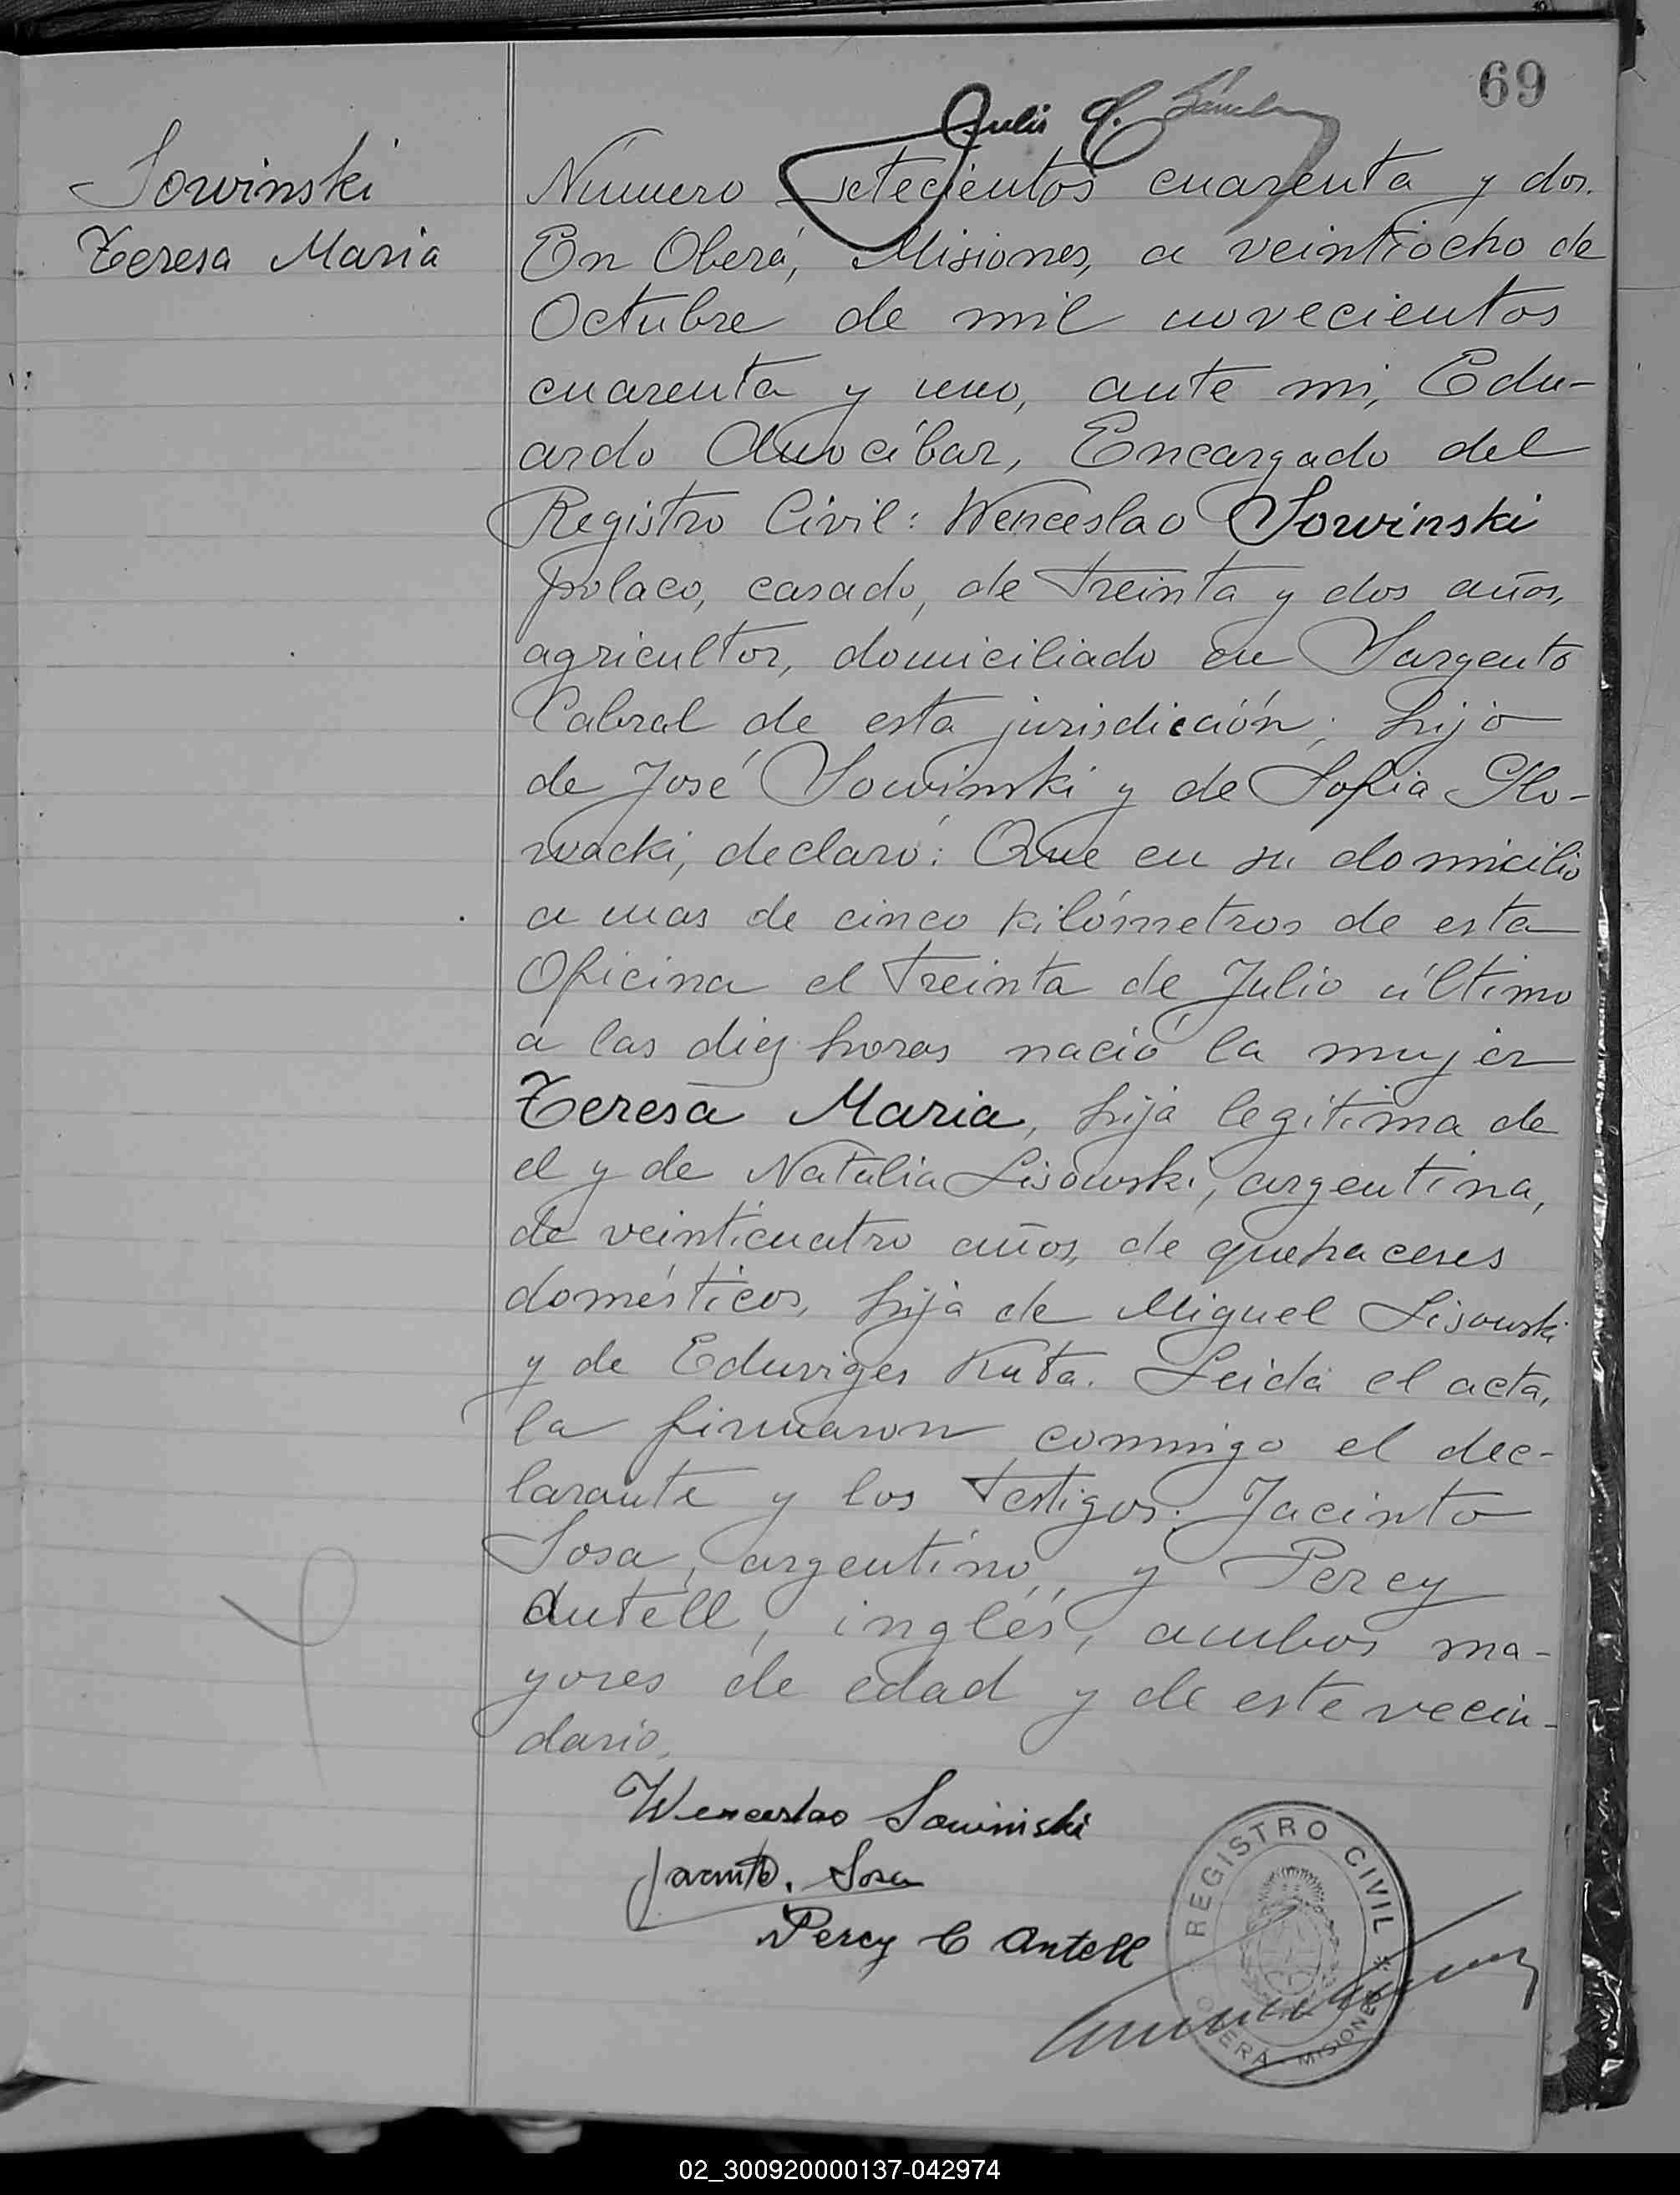 69
Julio
Sowinski
Teresa Maria
Número Setecientos cuarenta y dos.
En Oberá, Misiones, a veintiocho de
Octubre de mil novecientos
cuarenta y uno, ante mi, Edu-
ardo Amocibar, Encargado del
Registro Civil: Wenceslao Sowinski
polaco, casado, de treinta y dos años,
agricultor, domiciliado en Sargento
Cabral de esta jurisdicción; hijo
de José Sowinski y de Sofia Glo-
wacki, declaró: Que en su domicilio
a mas de cinco kilómetros de esta
Oficina el treinta de Julio último
a las diez horas nació la mujer
Teresa Maria, hija legitima de
el y de Natalia Lisowski, argentina,
de veinticuatro años, de quehaceres
domésticos, hija de Miguel Lisowski
y de Eduviges Kuta. Leida el acta,
la firmaron conmigo el dec-
larante y los testigos: Jacinto
Sosa, argentino, y Percy
Antell, inglés, ambos ma-
yores de edad y de este vecin-
dario.
Wenceslao Sowinski
Jacinto. Sosa
Percy C Antell
REGISTRO CIVIL
OBERA - MISIONES
02_300920000137-042974